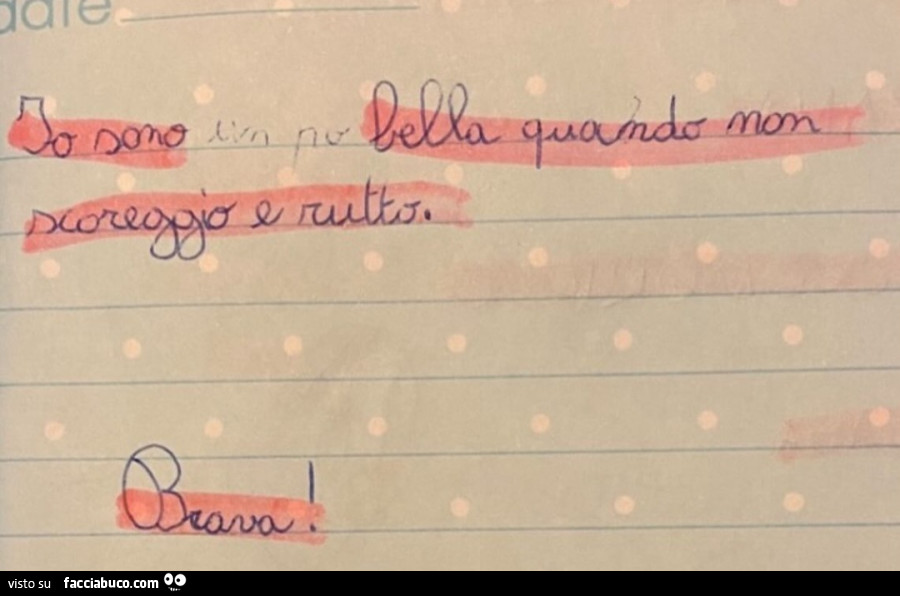 date
Io sono un po bella quando non
scoreggio e rutto.
Brava!
visto su facciabuco.com